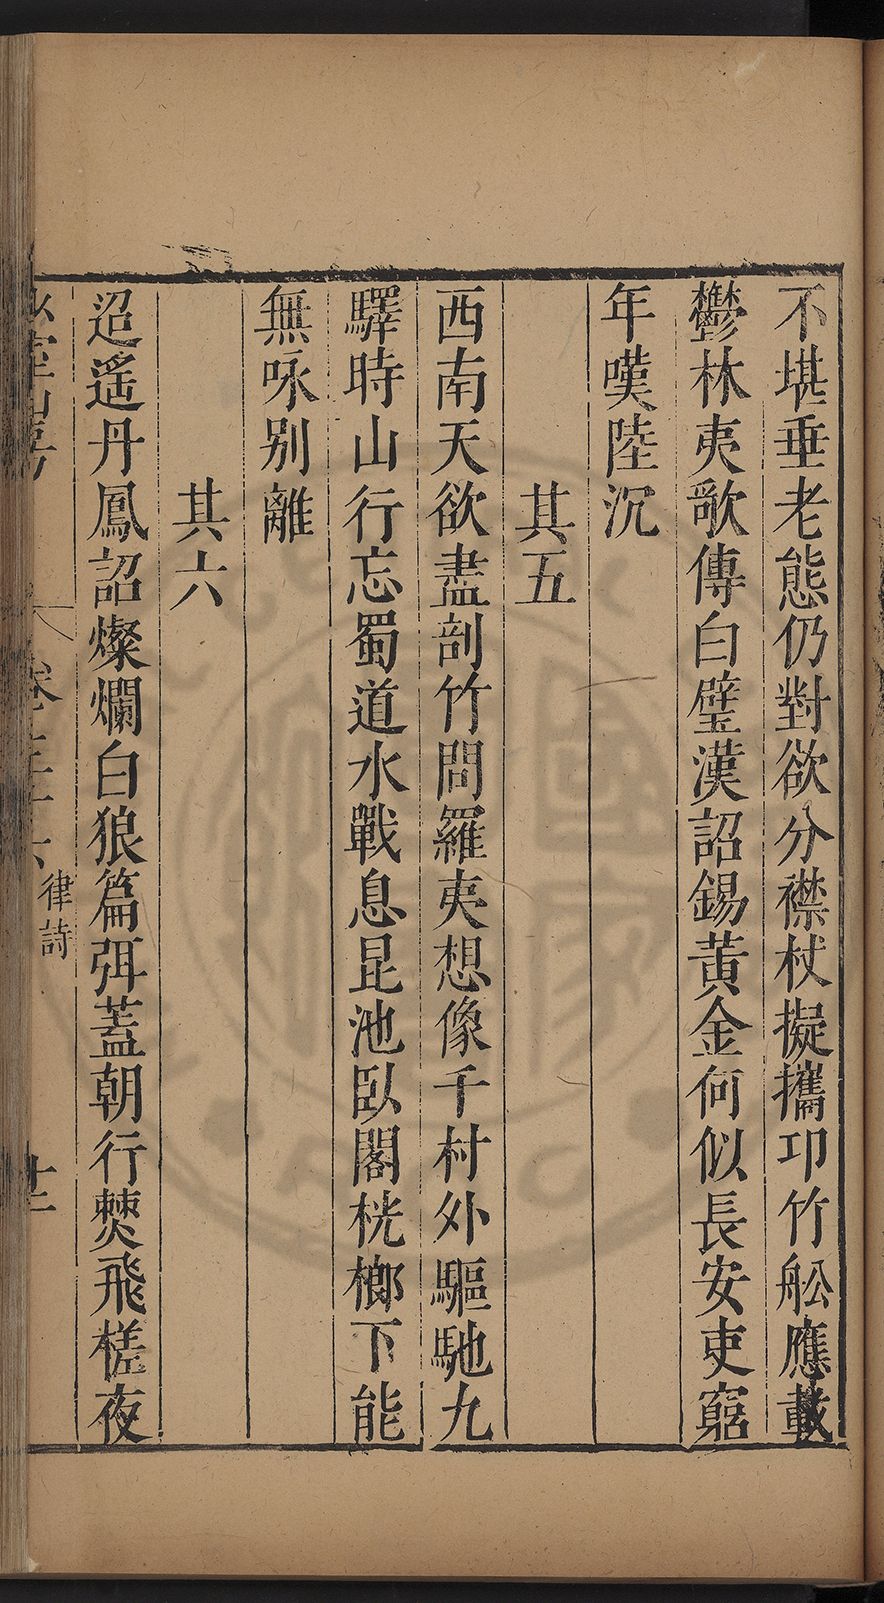 不堪垂老態仍對欲分襟杖擬攜卭竹舩應載
鬱林夷歌傳白璧漢詔錫黃金何似長安吏窮
年嘆陸沉
其五
西南天欲盡剖竹問羅夷想像千村外驅馳九
驛時山行忘蜀道水戰息昆池臥閣桄榔下能
無咏別離
其六
迢遙丹鳳詔燦爛白狼篇弭蓋朝行僰飛槎夜
律詩